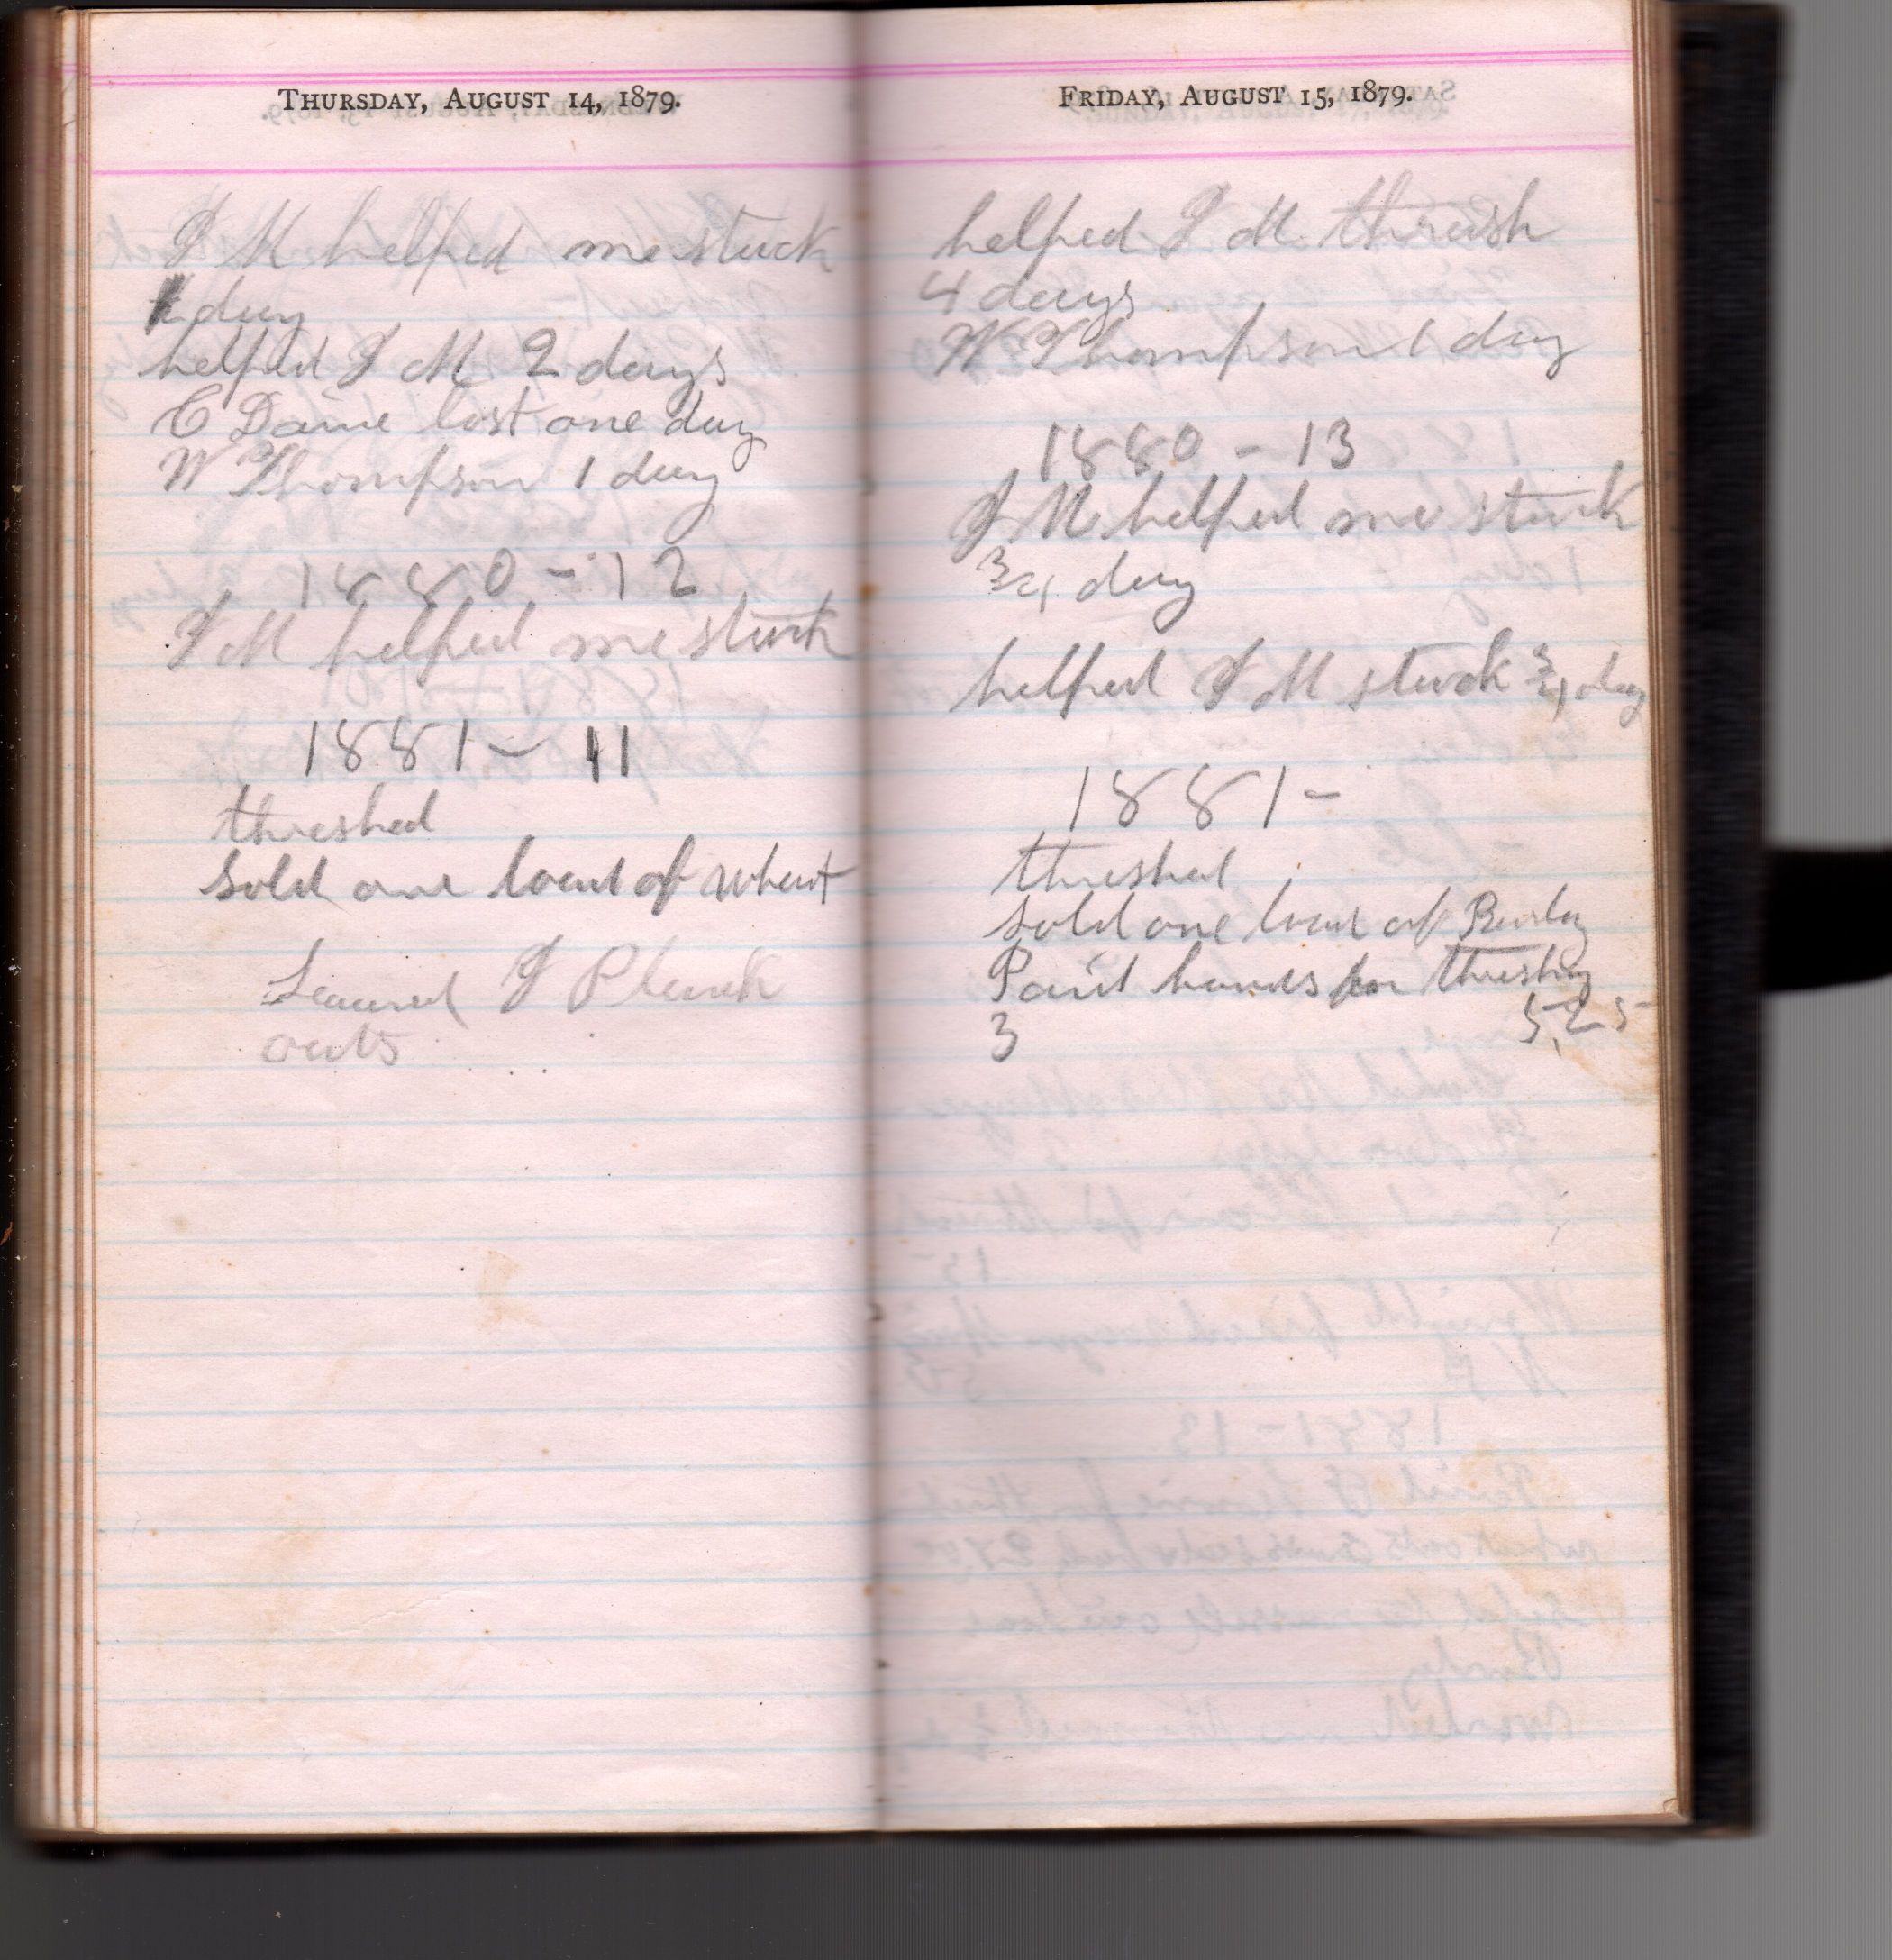 THURSDAY, AUGUST 14, 1879.
J M helped me stack
1 day
helped J M 2 days
C Dame lost one day
W Thompson 1 day
1880 - 12
J M helped me stack
1881 - 11
threshed
sold one load of wheat
J Plank
oats
FRIDAY, AUGUST 15, 1879.
helped J M. thrash
4 days
W Thompson 1 day
1880 - 13
J M helped me stack
3/4 day
helped J M stack 3/4 day
1881 -
threshed
sold one load of Barley
Paid hands for threshing
3 5,25